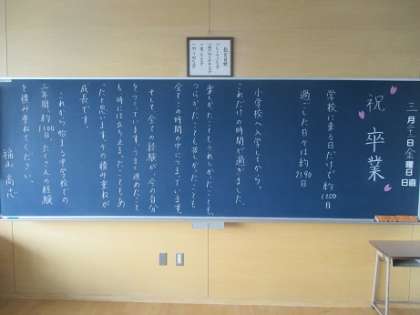 三月十一日金曜日
日直
祝 卒業
学校に来る日だけで約1200日
過ごした日々は約2190日
小学校へ入学してから、
これだけの時間が過ぎました。
楽しかったこともうれしかったことも、
つらかったことも悲しかったことも、
全てこの時間の中につまっています。
そして、全ての経験が、今の自分
をつくっています。うまく進めたこと
も、時には立ち止まったこともあ
ったと思います。その積み重ねが
成長です。
これから始まる中学校での
三年間、約600日。たくさんの経験
を積み重ねてください。
福山 尚